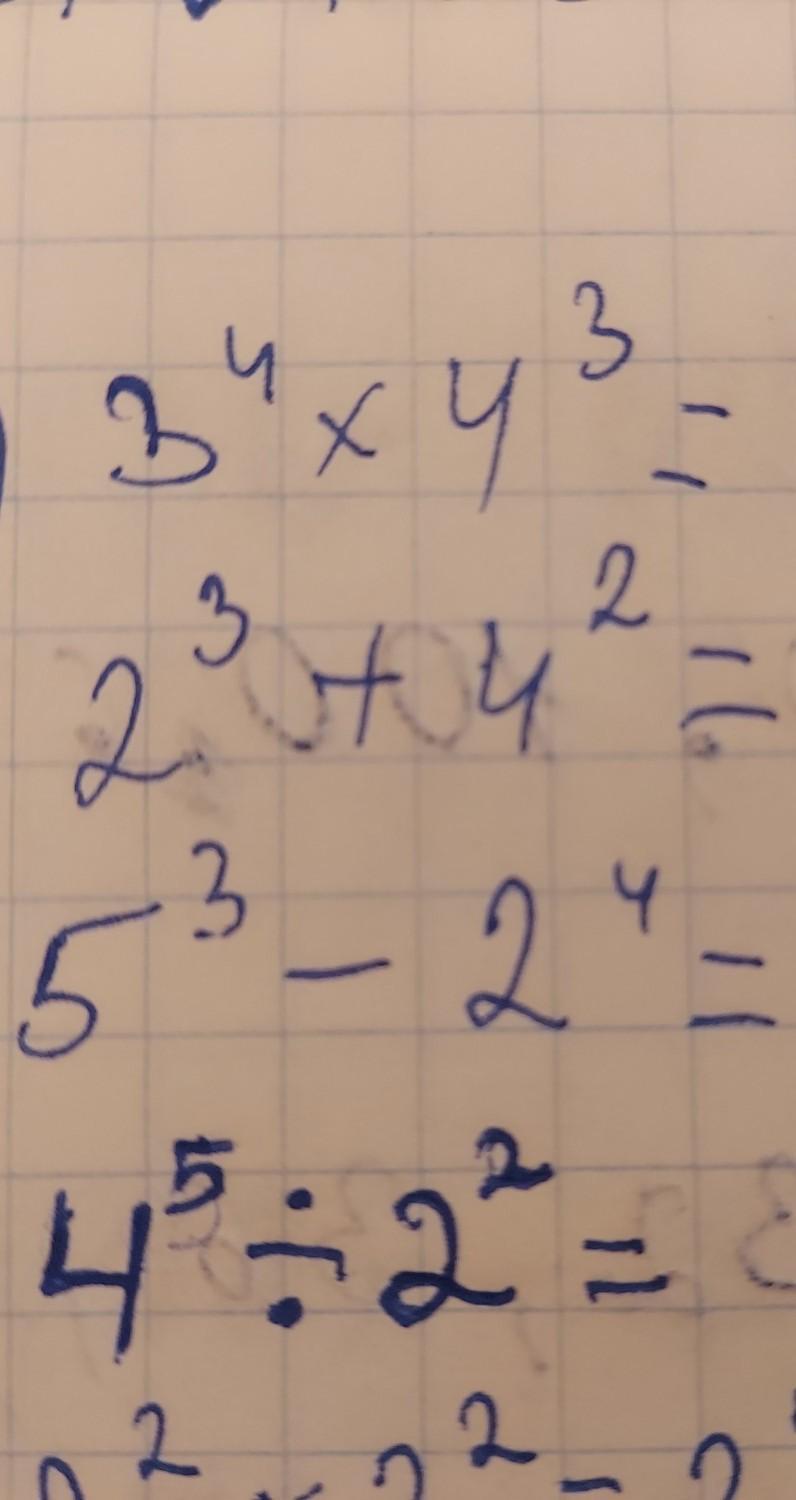 3⁴ × 4³ =
2³ + 4² =
5³ − 2⁴ =
4⁵ ÷ 2² =